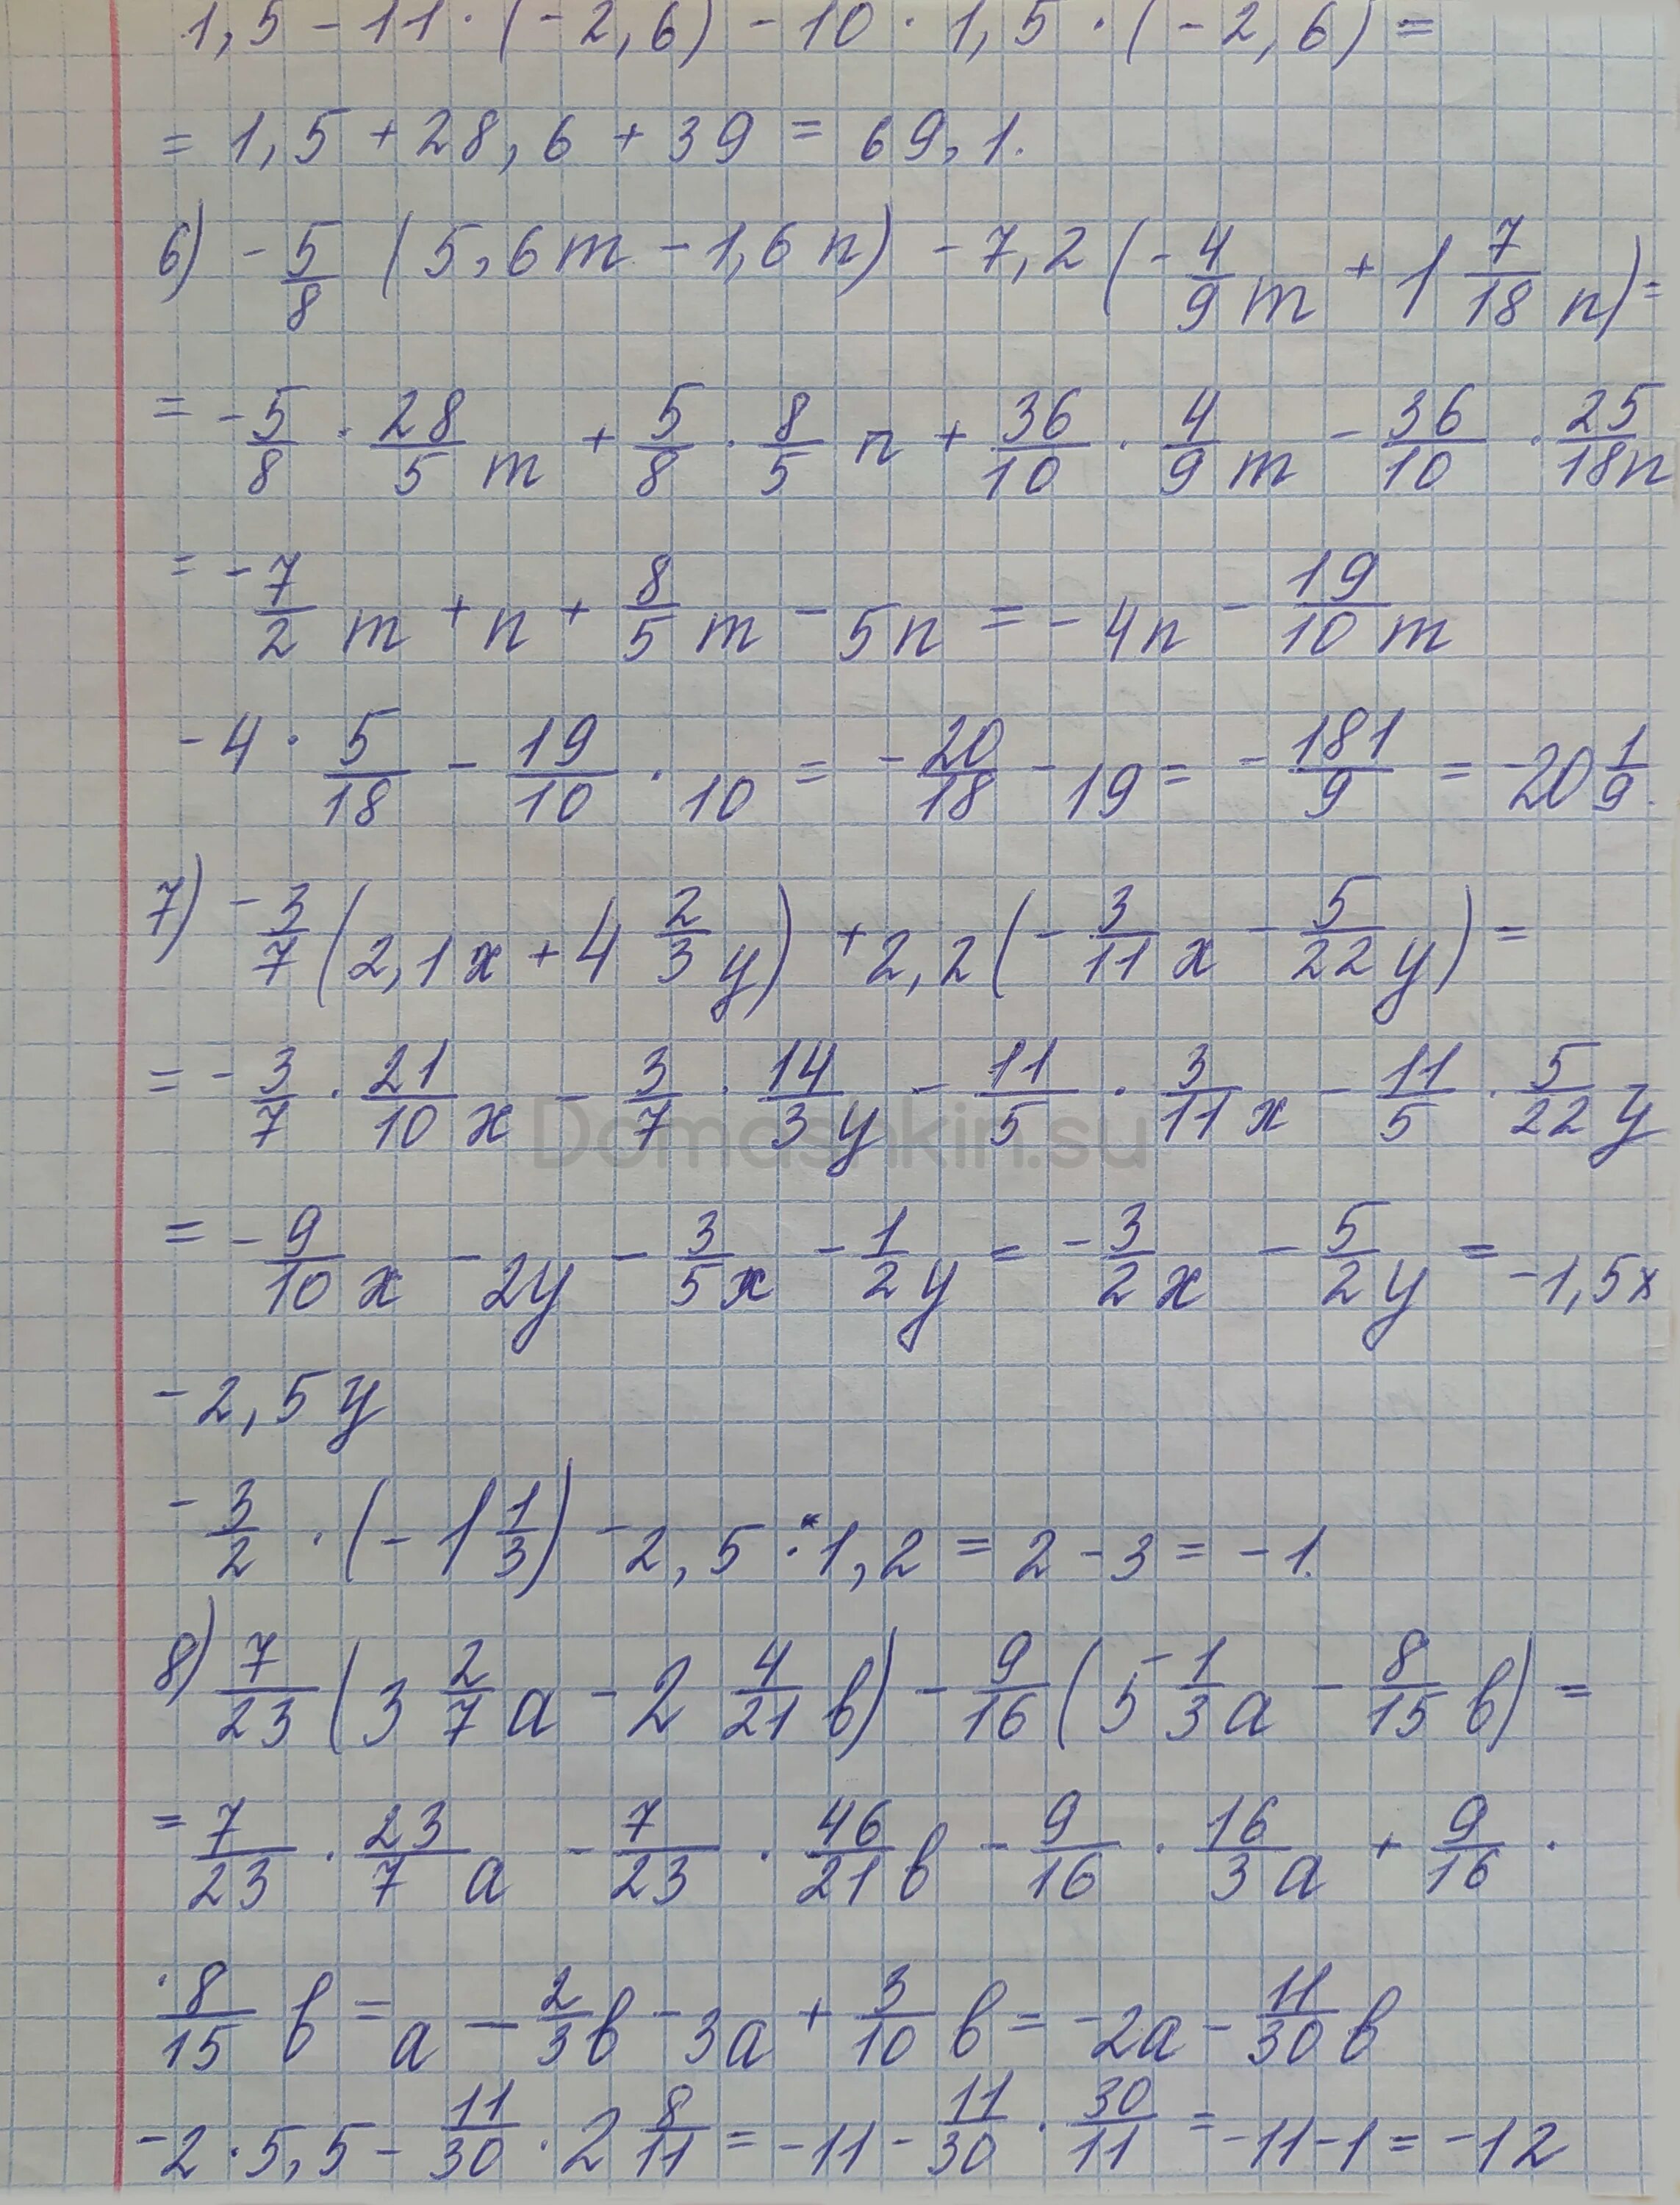 1,5 - 11 · (-2,6) - 10 · 1,5 · (-2,6) =
= 1,5 + 28,6 + 39 = 69,1.
6) -5/8 (5,6m - 1,6n) - 7,2 (-4/9 m + 1 7/18 n) =
= -5/8 · 28/5 m + 5/8 · 8/5 n + 36/10 · 4/9 m - 36/10 · 25/18 n
= -7/2 m + n + 8/5 m - 5n = -4n - 19/10 m
-4 · 5/18 - 19/10 · 10 = -20/18 - 19 = -181/9 = -20 1/9.
7) -3/7 (2,1x + 4 2/3 y) + 2,2 (-3/11 x - 5/22 y) =
= -3/7 · 21/10 x - 3/7 · 14/3 y - 11/5 · 3/11 x - 11/5 · 5/22 y
Domashkin.su
= -9/10 x - 2y - 3/5 x - 1/2 y = -3/2 x - 5/2 y = -1,5x
-2,5y
-3/2 · (-1 1/3) - 2,5 · 1,2 = 2 - 3 = -1.
8) 7/23 (3 2/7 a - 2 4/21 b) - 9/16 (5 1/3 a - 8/15 b) =
= 7/23 · 23/7 a - 7/23 · 46/21 b - 9/16 · 16/3 a + 9/16 ·
· 8/15 b = a - 2/3 b - 3a + 3/10 b = -2a - 11/30 b
-2 · 5,5 - 11/30 · 2 8/11 = -11 - 11/30 · 30/11 = -11 - 1 = -12